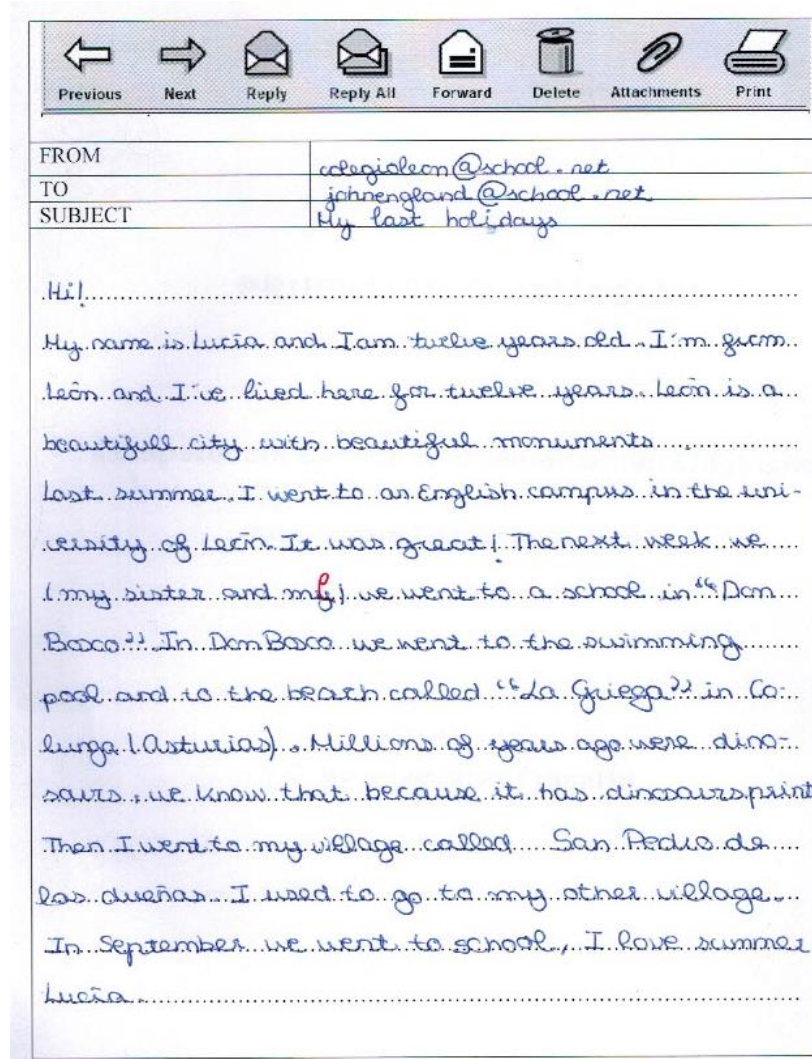 Previous Next Reply Reply All Forward Delete Attachments Print
FROM colegioleon@school.net
TO johnengland@school.net
SUBJECT My last holidays
Hi!
My name is Lucía and I am twelve years old. I'm from
León and I've lived here for twelve years. León is a
beautifull city with beautiful monuments.
Last summer, I went to an English campus in the uni-
versity of León. It was great! The next week we
(my sister and me) we went to a school in "Don
Bosco". In Don Bosco we went to the swimming
pool and to the beach called "La Griega" in Co-
lunga (Asturias). Millions of years ago were dino-
saurs, we know that because it has dinosaurs print
Then I went to my village called San Pedro de
las dueñas. I used to go to my other village.
In September we went to school, I love summer
Lucía.